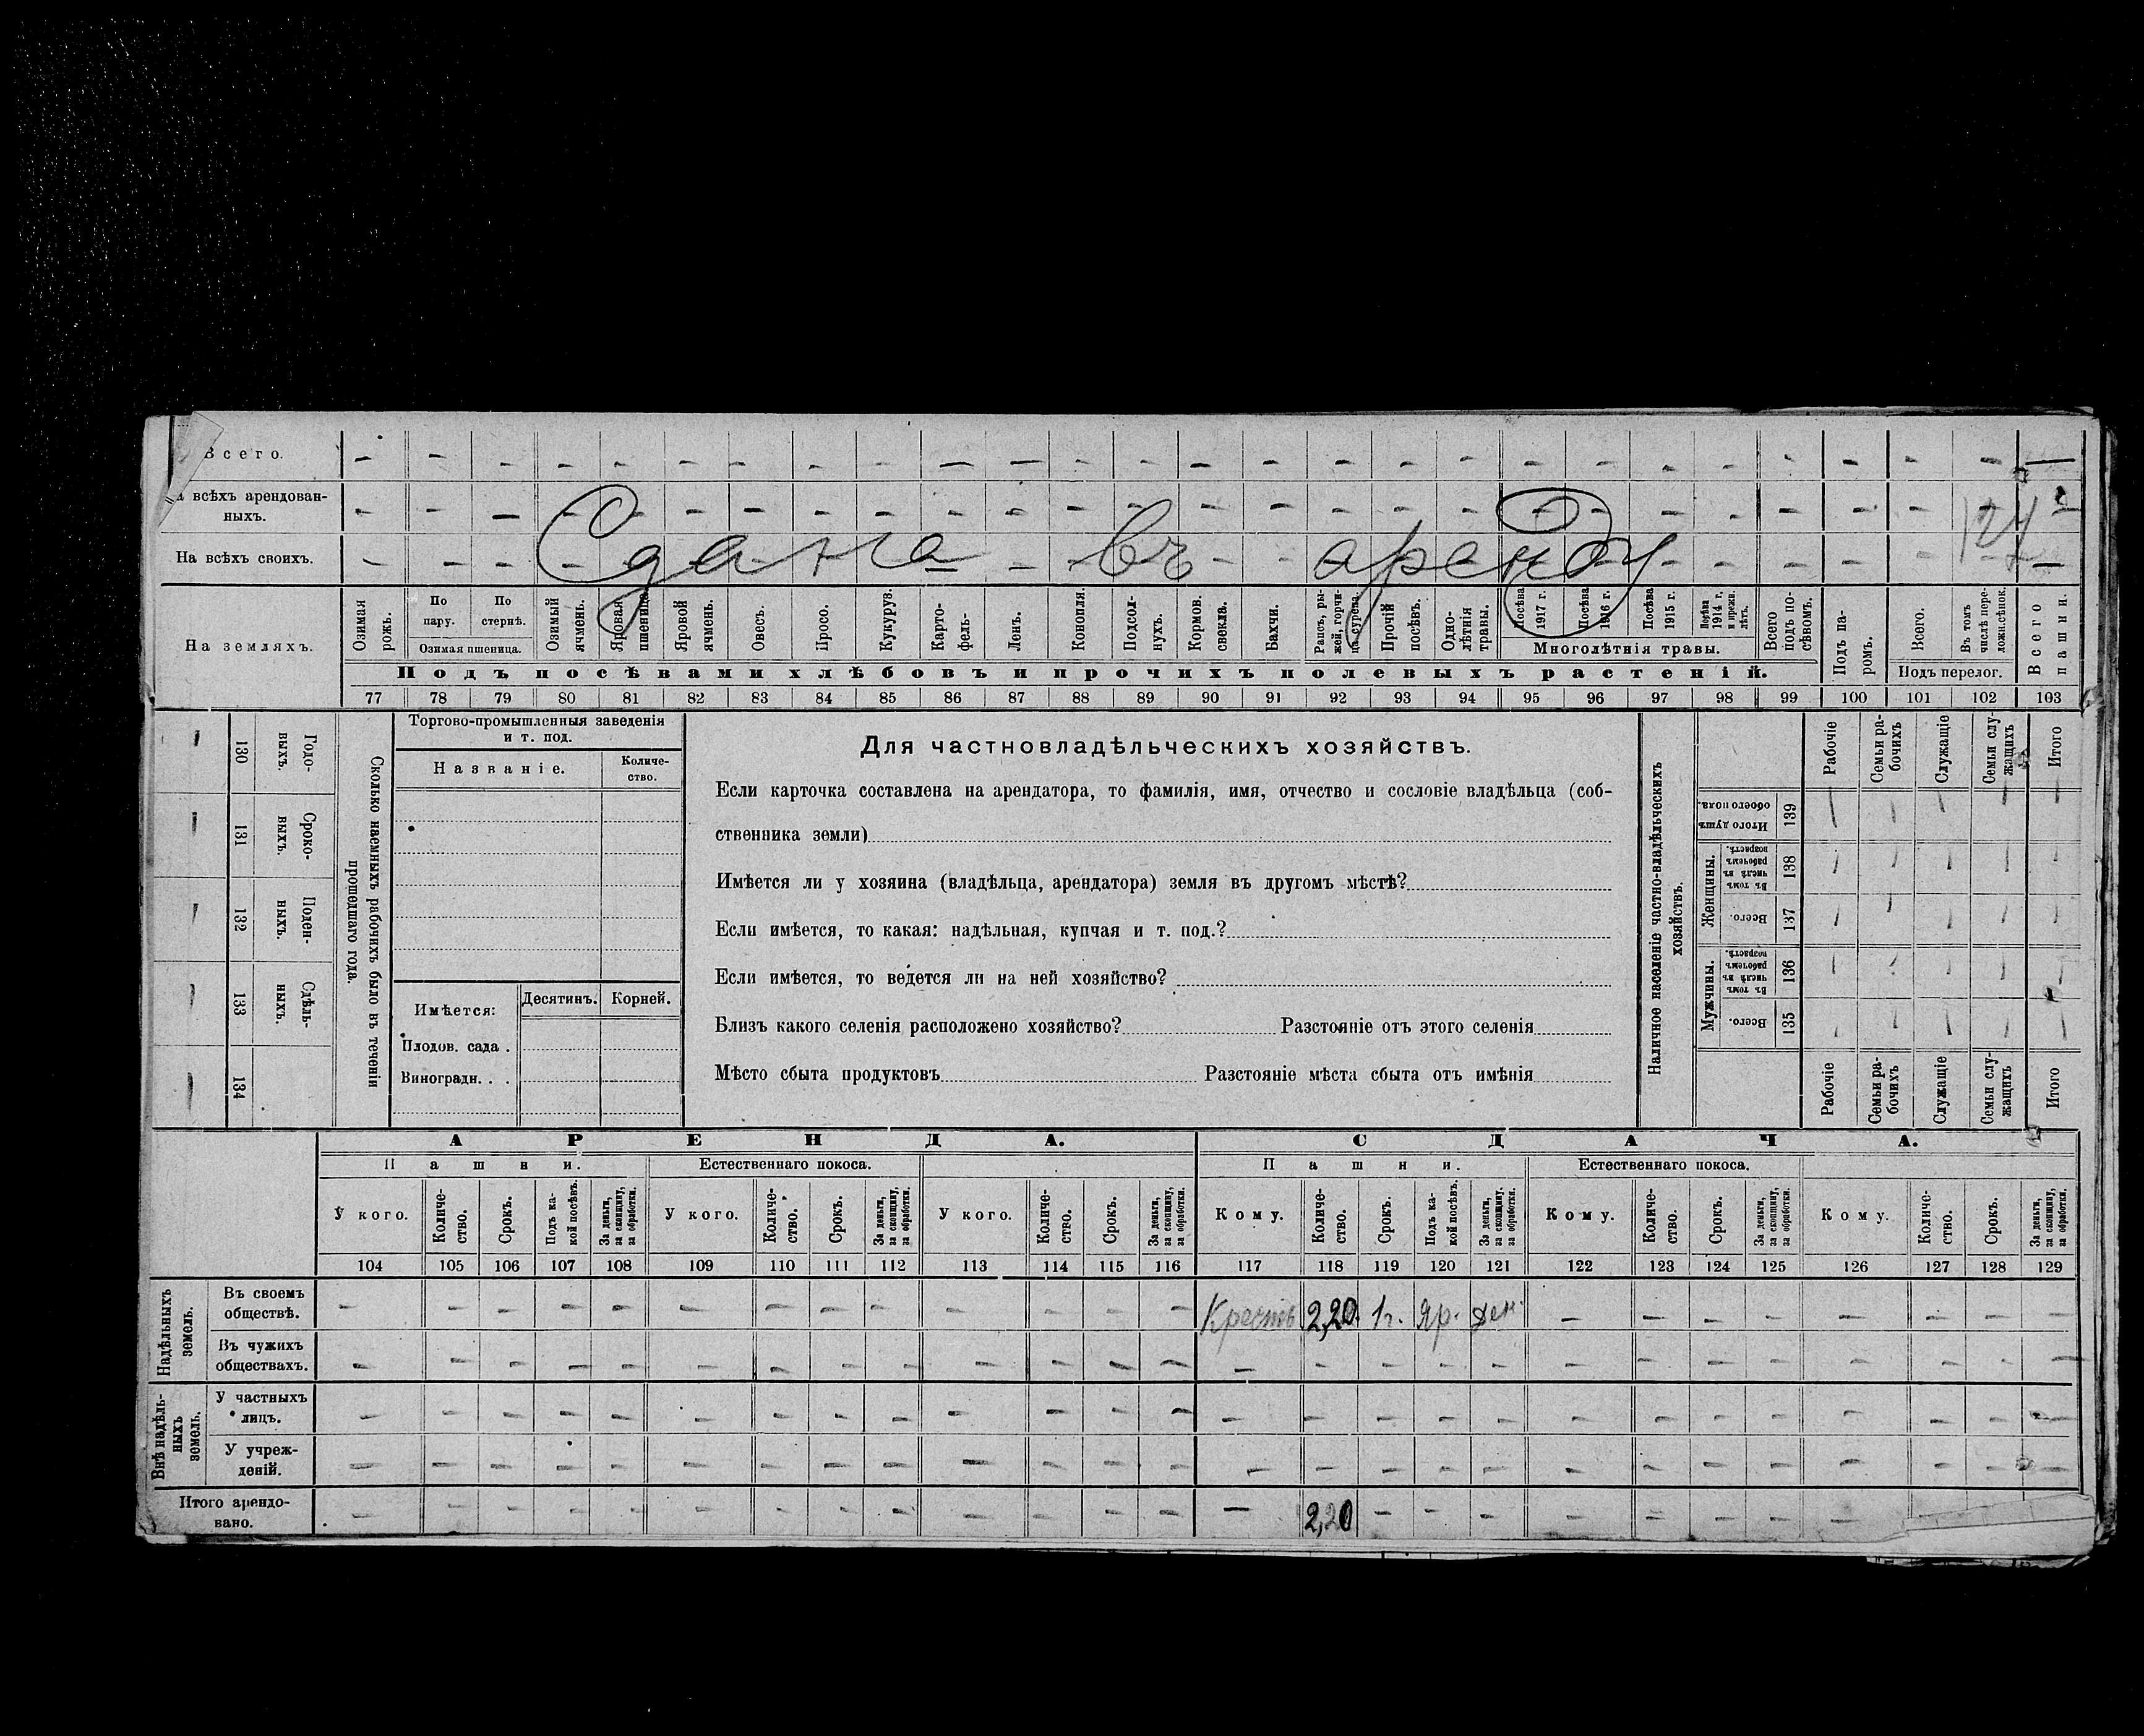 Всего.
всѣхъ арендован-
ныхъ.
124
На всѣхъ своихъ.
Сдана въ аренду
На земляхъ.
Озимая рожь.
По пару.
По стернѣ.
Озимая пшеница.
Озимый ячмень.
Яровая пшеница.
Яровой ячмень.
Овесъ.
Просо.
Кукуруз.
Карто-
фель.
Ленъ.
Конопля.
Подсол-
нухъ.
Кормов. свекла.
Бахчи.
Рапсъ, ры-
жей, горчи-
ца, сурепа.
Прочій посѣвъ.
Одно-
лѣтнія травы.
Посѣва 1917 г.
Посѣва 1916 г.
Посѣва 1915 г.
Посѣва 1914 г. и прежн. лѣтъ.
Многолѣтнія травы.
Всего подъ по-
сѣвомъ.
Подъ посѣвами хлѣбовъ и прочихъ полевыхъ растеній.
Подъ па-
ромъ.
Всего.
Въ томъ числѣ пере-
ложн. сѣнок.
Подъ перелог.
Всего пашни.
77 78 79 80 81 82 83 84 85 86 87 88 89 90 91 92 93 94 95 96 97 98 99 100 101 102 103
130 Годо-
выхъ.
131 Сроко-
выхъ.
132 Поден-
ныхъ.
133 Сдѣль-
ныхъ.
134
Сколько наемныхъ рабочихъ было въ теченіи
прошедшаго года.
Торгово-промышленныя заведенія
и т. под.
Названіе.
Количе-
ство.
Имѣется:
Десятинъ.
Корней.
Плодов. сада .
Виноградн. . .
Для частновладѣльческихъ хозяйствъ.
Если карточка составлена на арендатора, то фамилія, имя, отчество и сословіе владѣльца (соб-
ственника земли)
Имѣется ли у хозяина (владѣльца, арендатора) земля въ другомъ мѣстѣ?
Если имѣется, то какая: надѣльная, купчая и т. под.?
Если имѣется, то ведется ли на ней хозяйство?
Близъ какого селенія расположено хозяйство? Разстояніе отъ этого селенія
Мѣсто сбыта продуктовъ Разстояніе мѣста сбыта отъ имѣнія
Наличное населеніе частно-владѣльческихъ
хозяйствъ.
Рабочіе
Семьи ра-
бочихъ
Служащіе
Семьи слу-
жащихъ
Итого
Итого душъ обоего пола.
139
Женщины.
Въ томъ числѣ въ рабочемъ возрастѣ.
138
Всего.
137
Мужчины.
Въ томъ числѣ въ рабочемъ возрастѣ.
136
Всего.
135
Рабочіе
Семьи ра-
бочихъ
Служащіе
Семьи слу-
жащихъ
Итого
АРЕНДА.
СДАЧА.
Пашни.
Естественнаго покоса.
Пашни.
Естественнаго покоса.
У кого.
Количе-
ство.
Срокъ.
Подъ ка-
кой посѣвъ.
За деньги, за скопщину, за обработки.
У кого.
Количе-
ство.
Срокъ.
За деньги, за скопщину, за обработки.
У кого.
Количе-
ство.
Срокъ.
За деньги, за скопщину, за обработки.
Кому.
Количе-
ство.
Срокъ.
Подъ ка-
кой посѣвъ.
За деньги, за скопщину, за обработки.
Кому.
Количе-
ство.
Срокъ.
За деньги, за скопщину, за обработки.
Кому.
Количе-
ство.
Срокъ.
За деньги, за скопщину, за обработки.
104 105 106 107 108 109 110 111 112 113 114 115 116 117 118 119 120 121 122 123 124 125 126 127 128 129
Надѣльныхъ
земель.
Въ своемъ
обществѣ.
Крестъ 2,20. 1 г. Яр. ден.
Въ чужихъ
обществахъ.
Внѣ надѣль-
ныхъ
земель.
У частныхъ
лицъ.
У учреж-
деній.
Итого арендо-
вано.
2,20